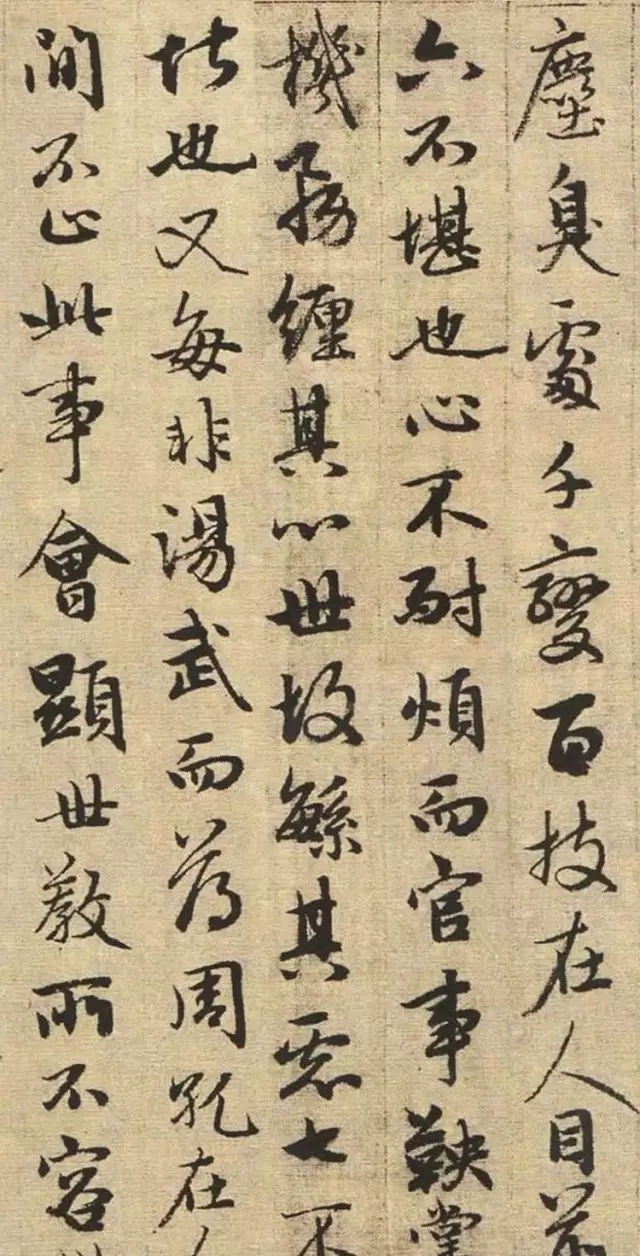 塵臭處千變百技在人目前
六不堪也心不耐煩而官事鞅掌
機務纏其心世故繁其慮七不
堪也又每非湯武而薄周孔在人
間不止此事會顯世教所不容